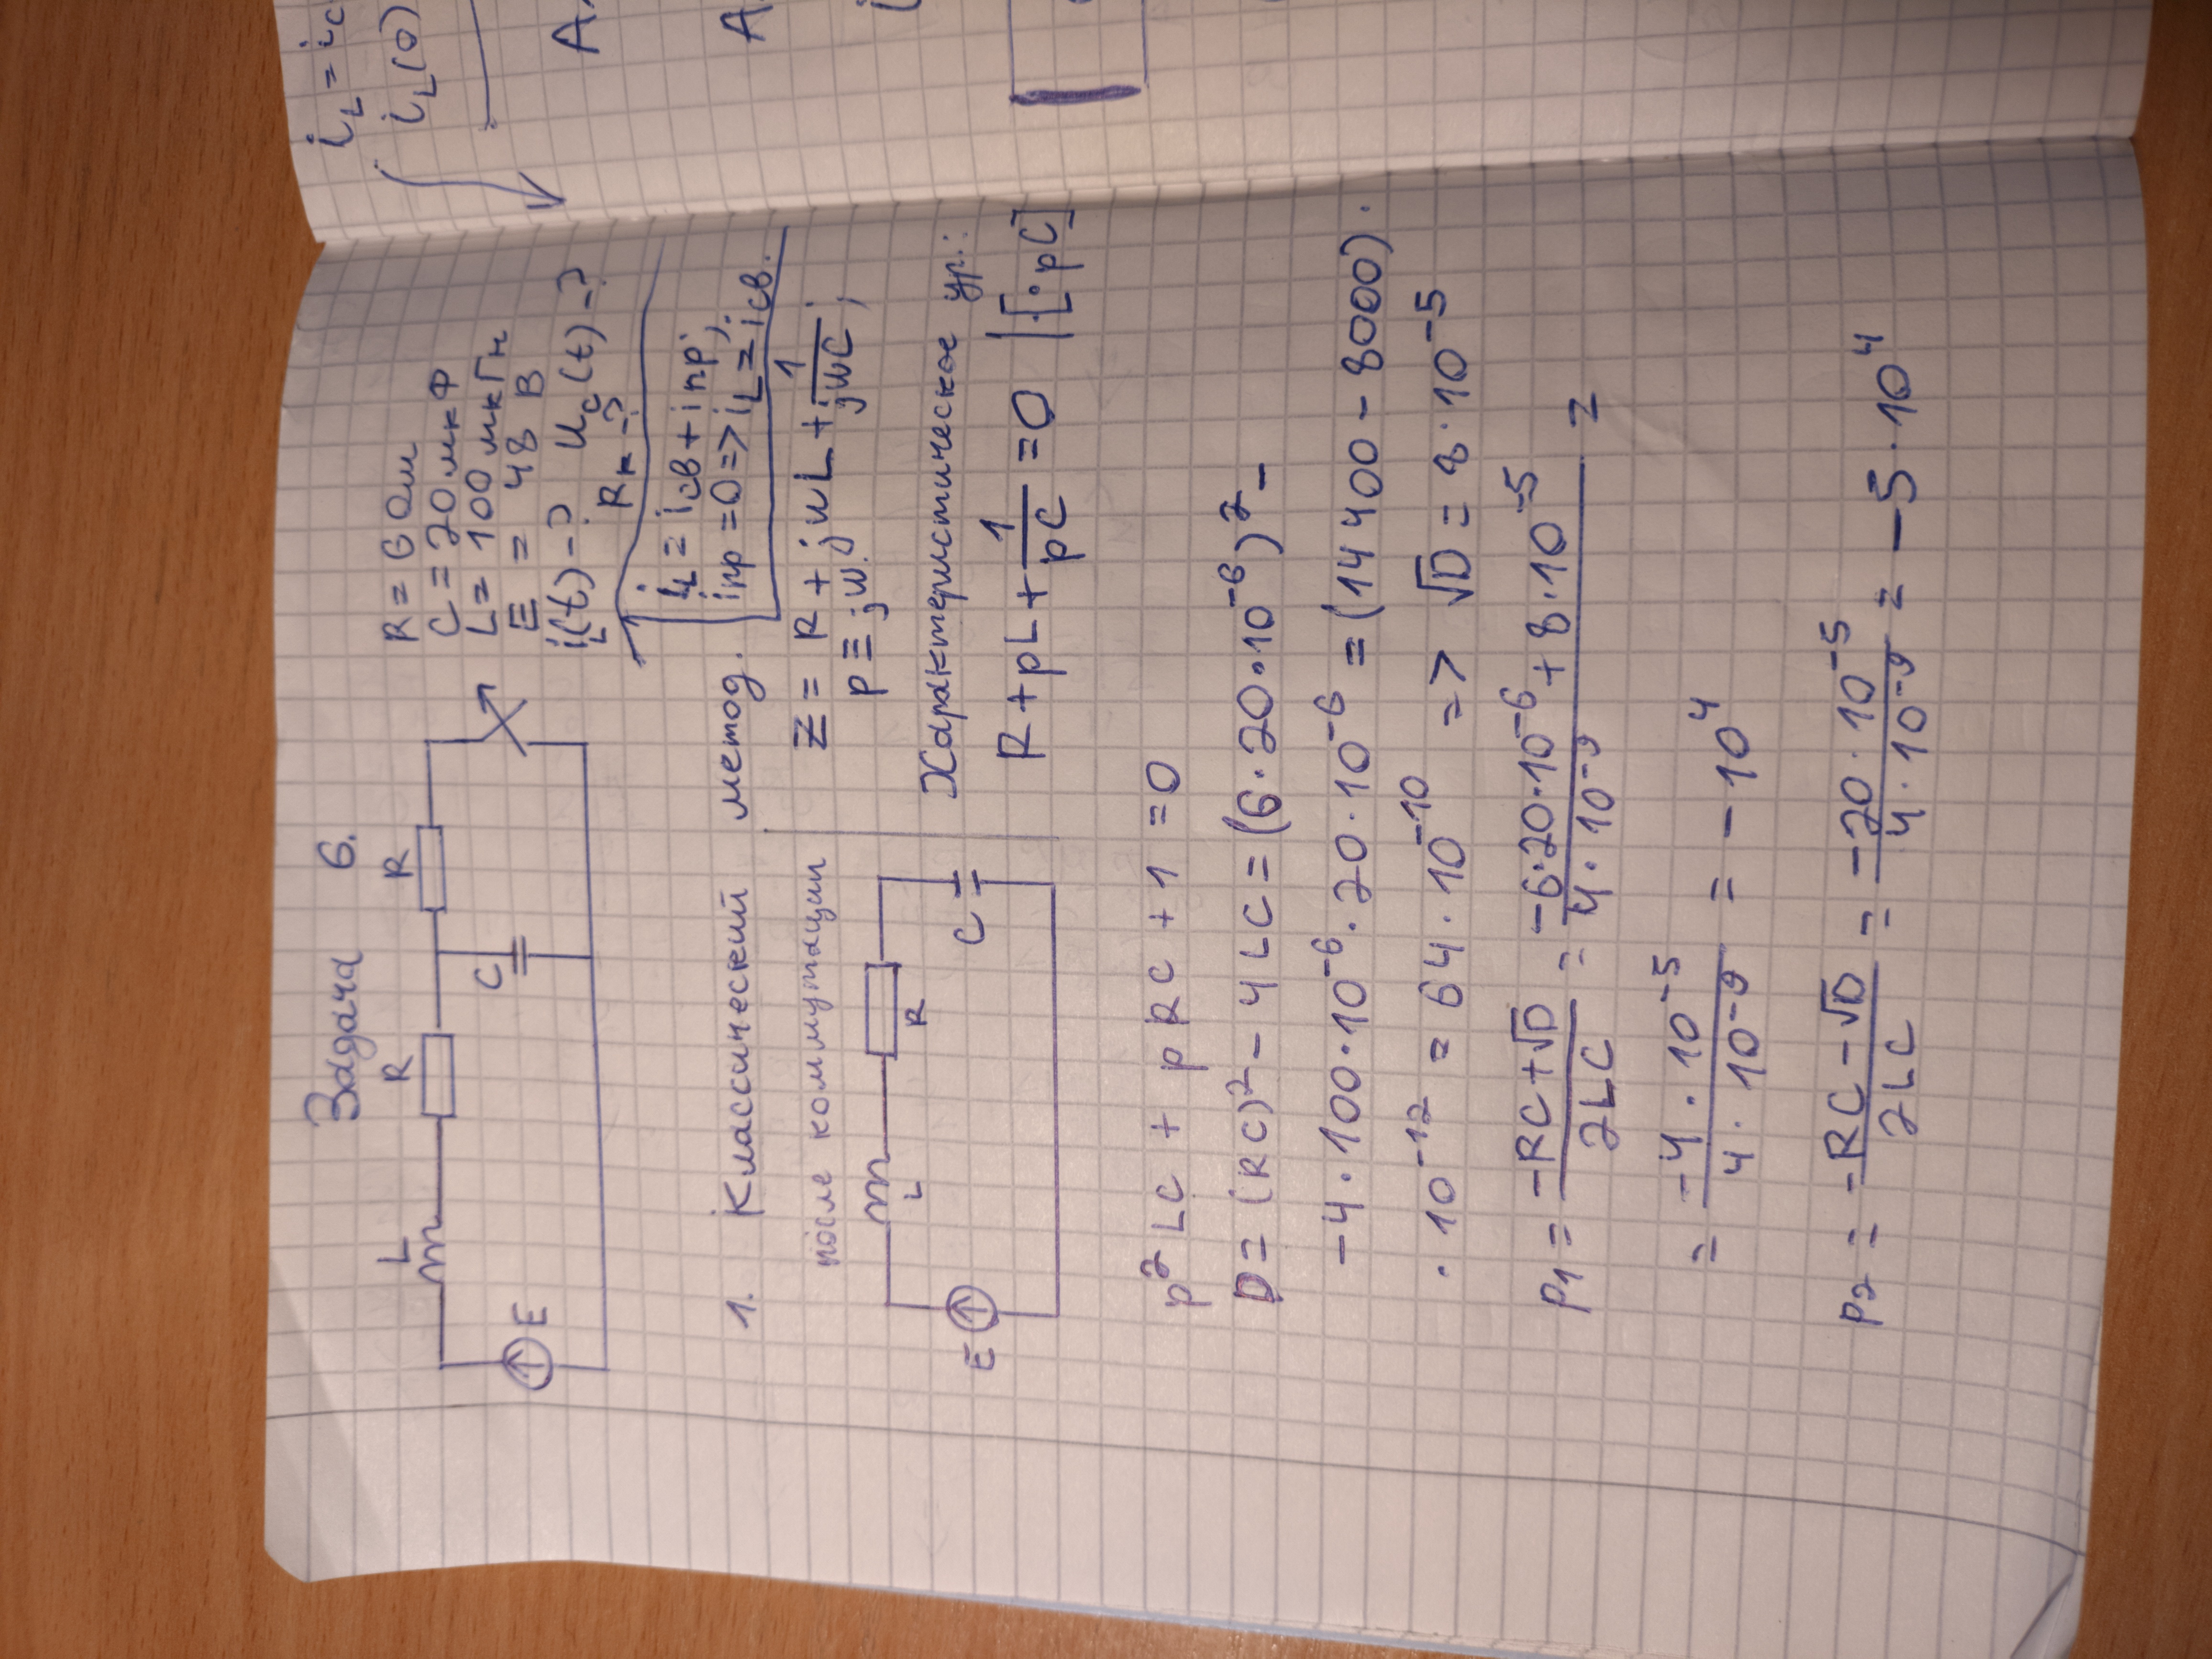 Задача 6.
L R R
C
E
R = 6 Ом
C = 20 мкФ
L = 100 мкГн
E = 48 В
i_L(t) - ? U_c(t) - ?
R_к - ?
i_L = i_св + i_пр;
i_пр = 0 => i_L = i_св.
1. Классический метод.
после коммутации
L R
E C
Z = R + jwL + 1/(jwC);
p ≡ jw.
Характеристическое ур.:
R + pL + 1/(pC) = 0 | [· pC]
p² LC + p RC + 1 = 0
D = (RC)² - 4LC = (6·20·10⁻⁶)² -
-4·100·10⁻⁶·20·10⁻⁶ = (14400 - 8000)·
·10⁻¹² = 64·10⁻¹⁰ => √D = 8·10⁻⁵
p₁ = (-RC+√D)/(2LC) = (-6·20·10⁻⁶ + 8·10⁻⁵)/(4·10⁻⁹) =
= (-4·10⁻⁵)/(4·10⁻⁹) = -10⁴
p₂ = (-RC-√D)/(2LC) = (-20·10⁻⁵)/(4·10⁻⁹) = -5·10⁴
i_L = i_c
i_L(0)